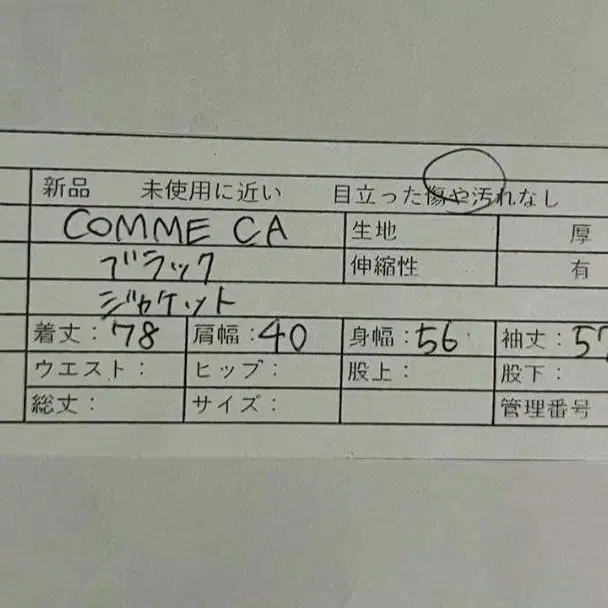 新品 未使用に近い 目立った傷や汚れなし
COMME CA 生地 厚
ブラック 伸縮性 有
ジャケット
着丈：78 肩幅：40 身幅：56 袖丈：57
ウエスト： ヒップ： 股上： 股下：
総丈： サイズ： 管理番号